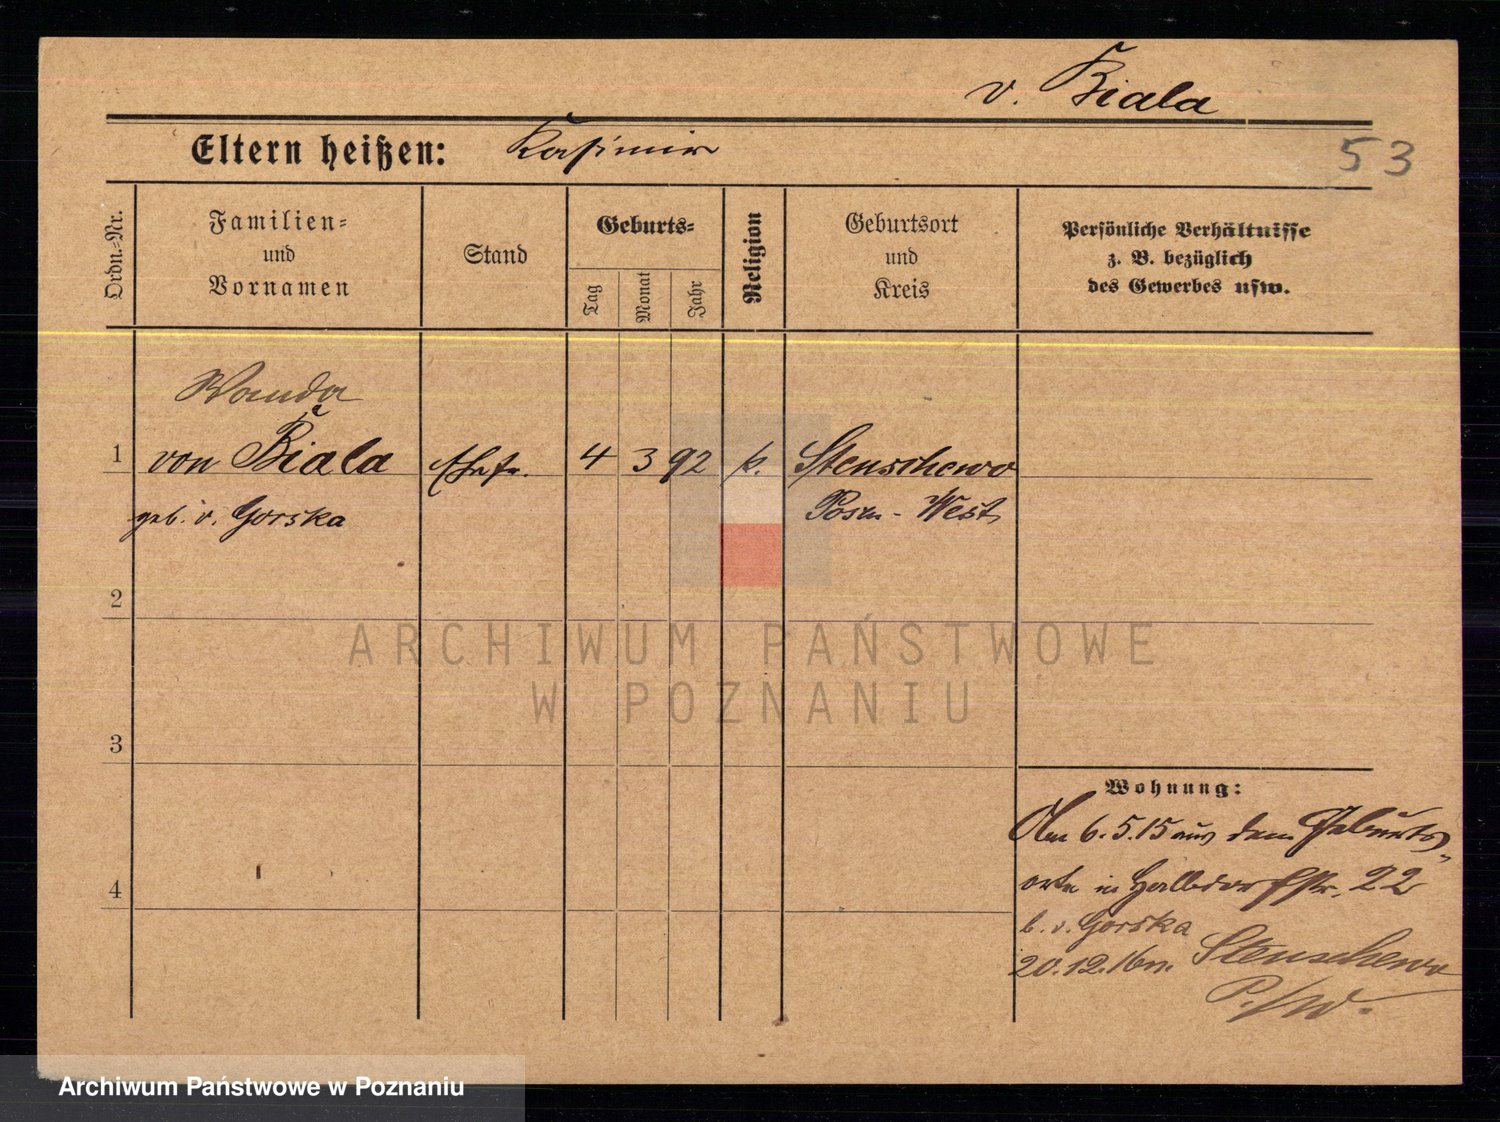 v. Biala
Eltern heißen: Kasimir
53
Ordn.-Nr.
Familien-
und
Vornamen
Stand
Geburts-
Tag
Monat
Jahr
Religion
Geburtsort
und
Kreis
Persönliche Verhältnisse
z. B. bezüglich
des Gewerbes usw.
Wanda
1 von Biala Ehefr. 4 3 92 k. Stenschewo
geb. v. Gorska Posen-West
2
3
4
Wohnung:
Am 6.5.15 aus dem Geburts-
orte in Halbdorfstr. 22
b. v. Gorska
20.12.16 n. Stenschewo
P./W.
ARCHIWUM PAŃSTWOWE
W POZNANIU
Archiwum Państwowe w Poznaniu